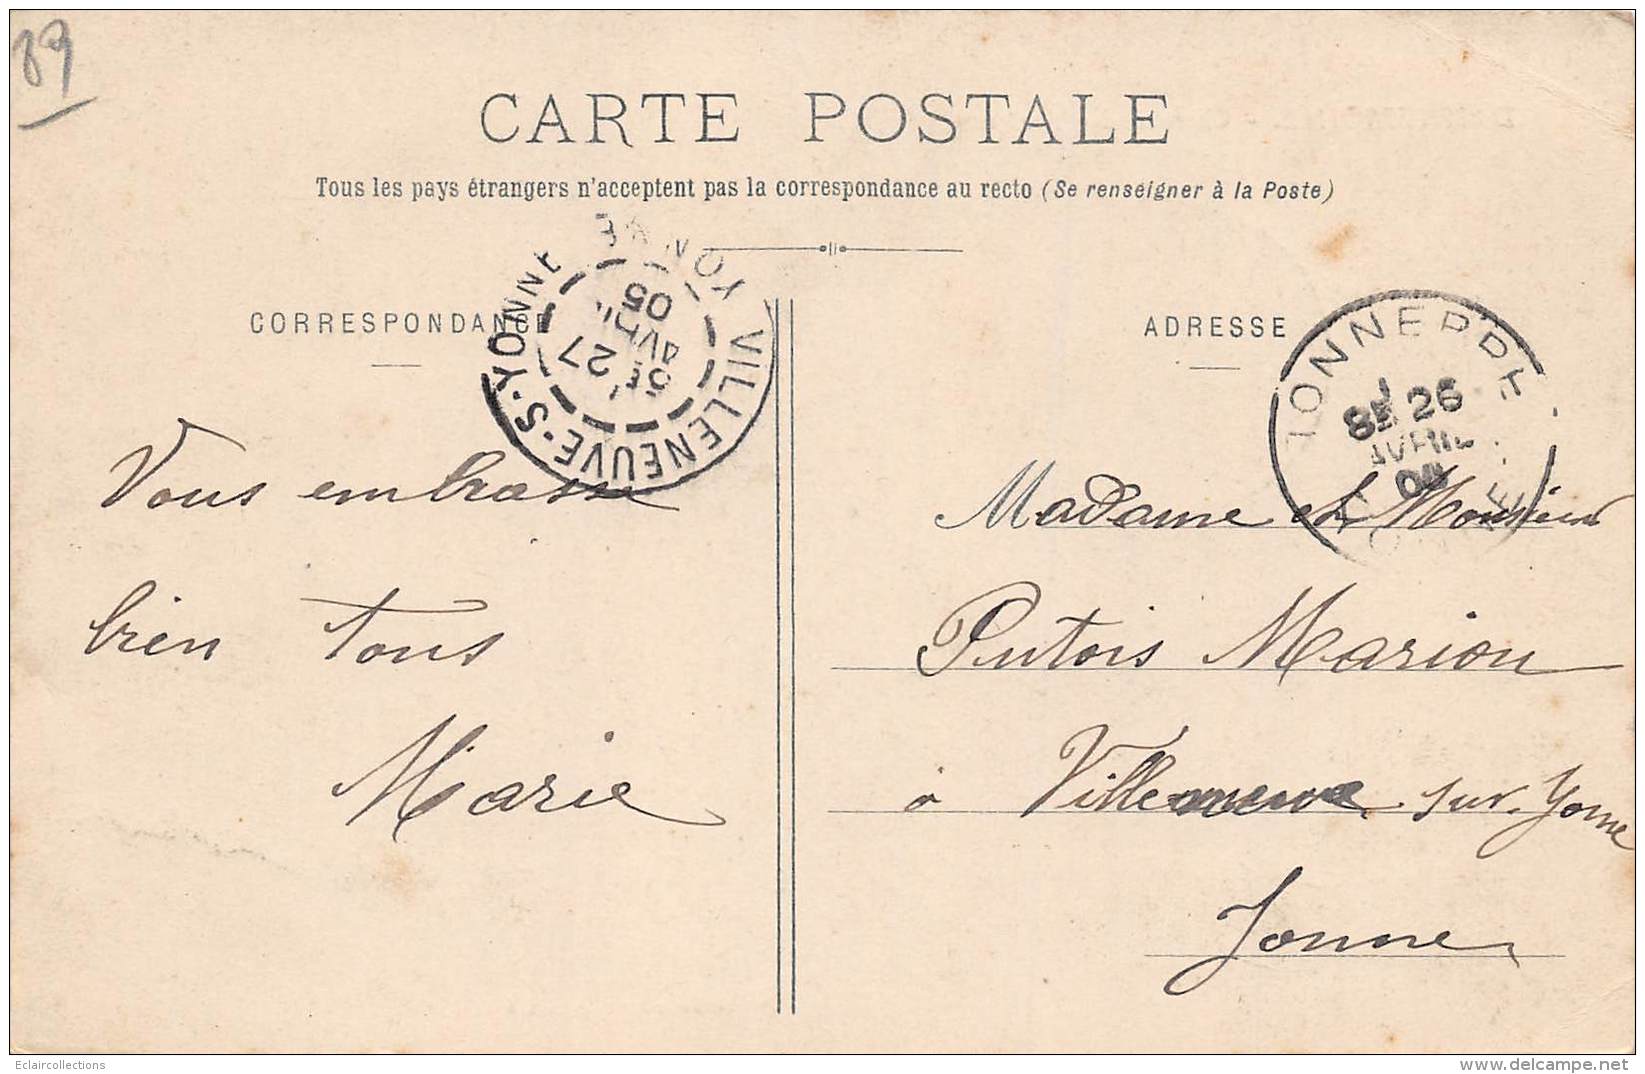 89
CARTE POSTALE
Tous les pays étrangers n'acceptent pas la correspondance au recto (Se renseigner à la Poste)
CORRESPONDANCE
VILLENEUVE-S-YONNE YONNE
5E 27
AVRIL
05
Vous embrasse
bien tous
Marie
ADRESSE
8E 26
AVRIL
Madame et Monsieur
Putois Marion
à Villeneuve sur Yonne
Yonne
Eclaircollections
www.delcampe.net